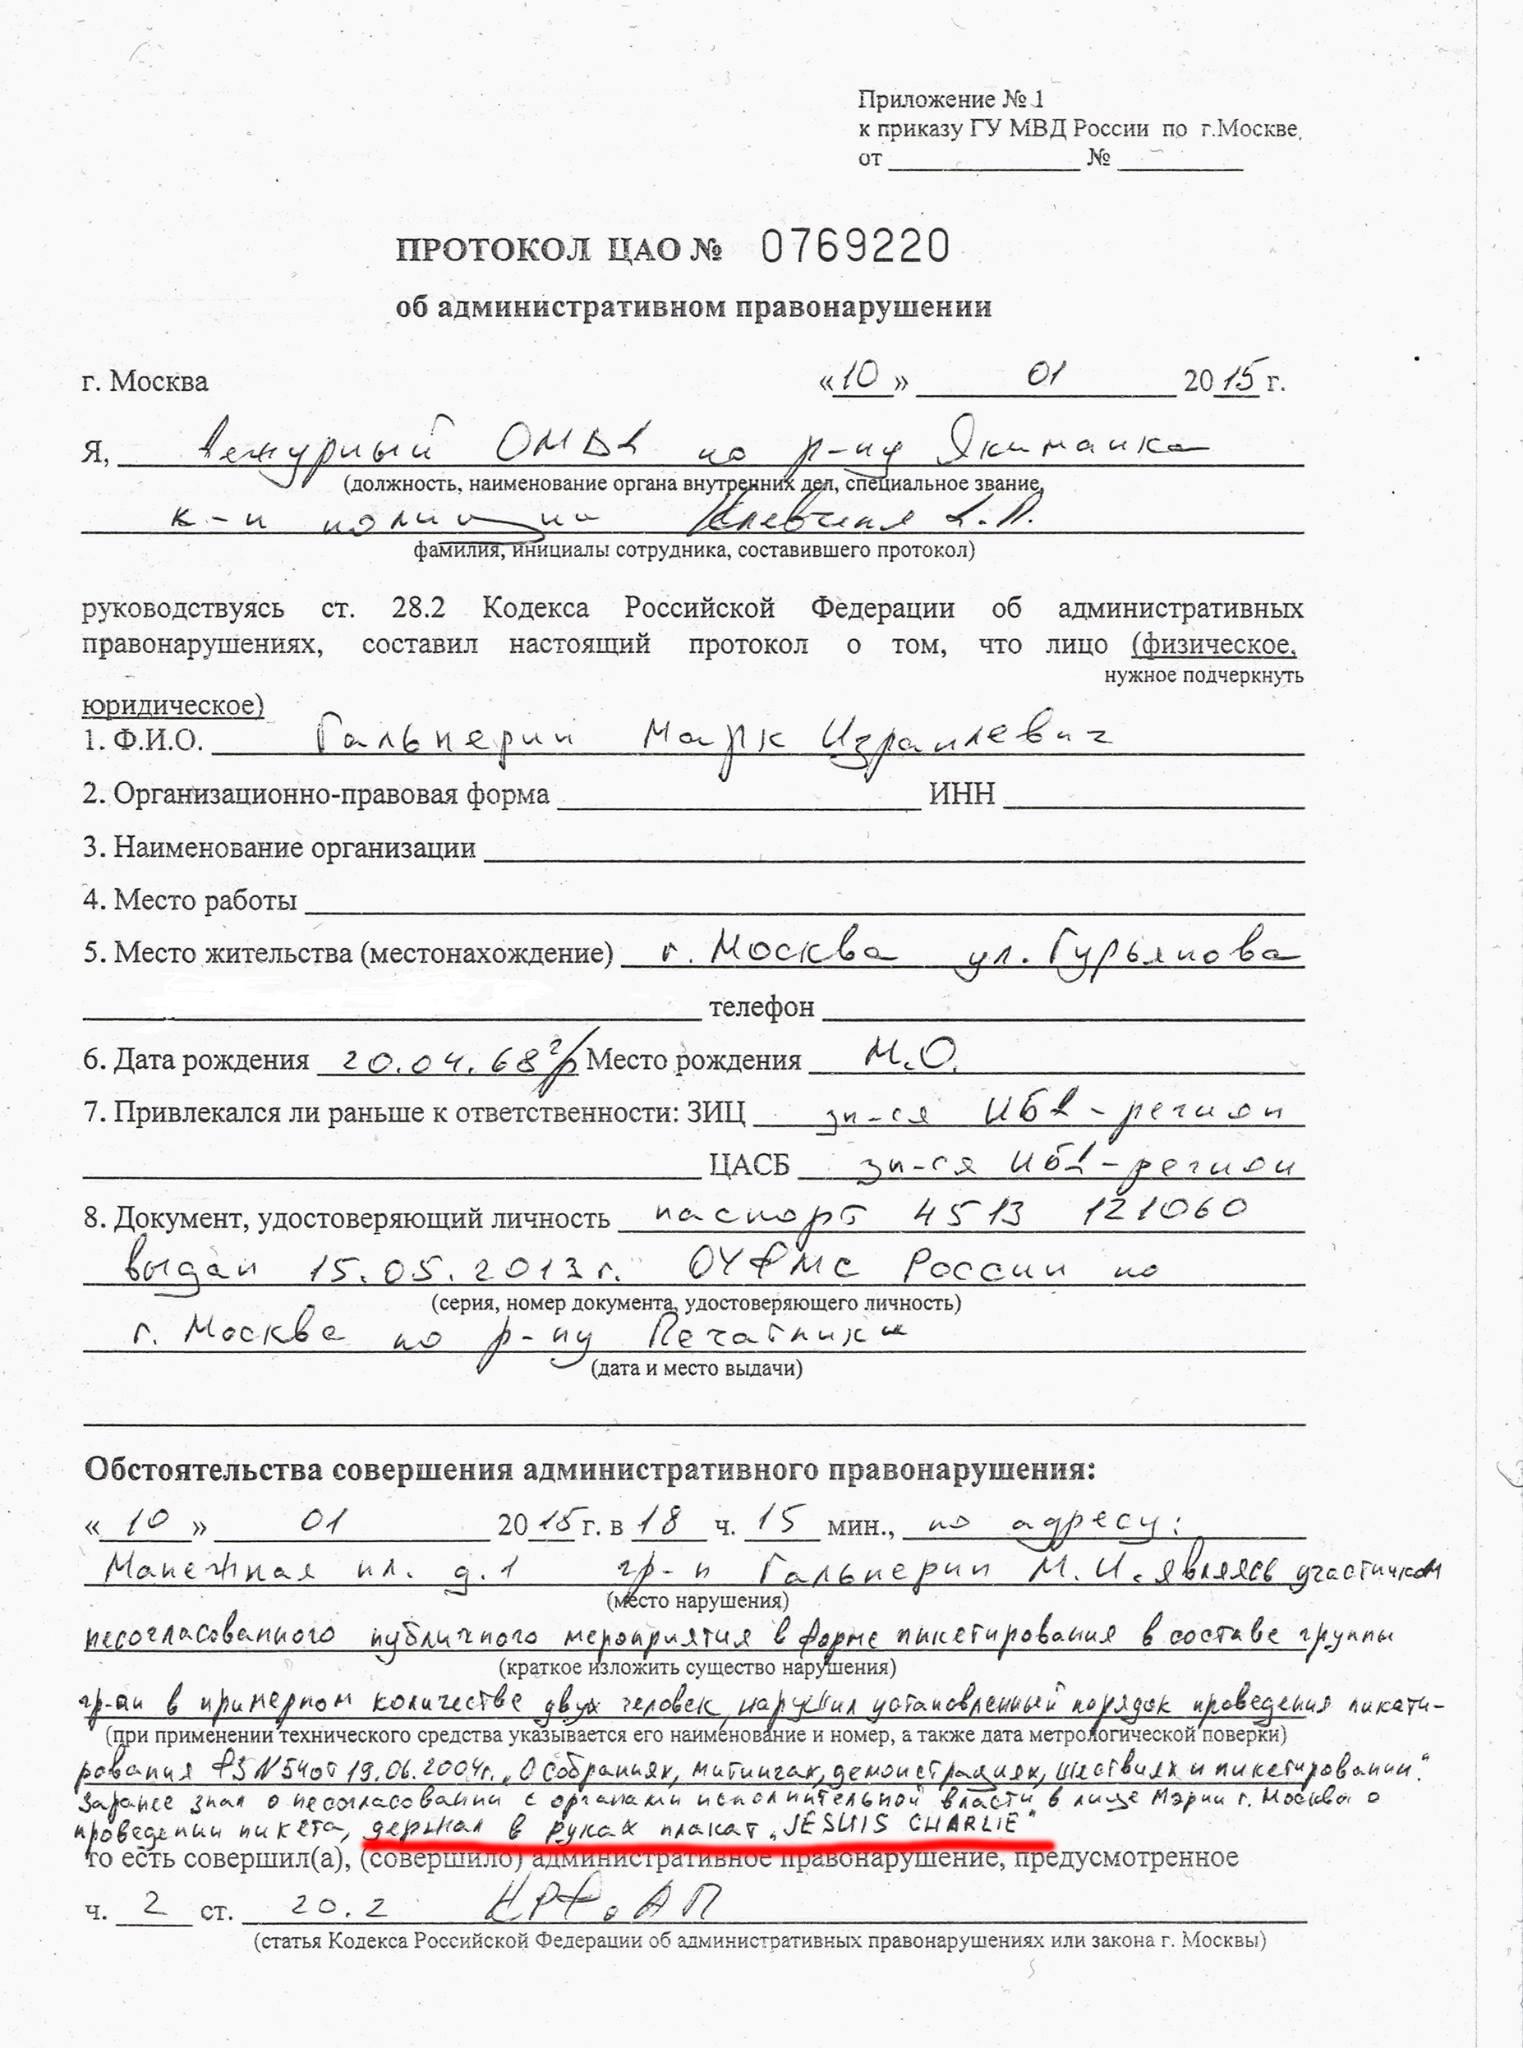 Приложение № 1
к приказу ГУ МВД России по г.Москве
от ____________ № ____________
ПРОТОКОЛ ЦАО № 0769220
об административном правонарушении
г. Москва «10» 01 2015 г.
Я, дежурный ОМВД по р-ну Якиманка
(должность, наименование органа внутренних дел, специальное звание,
к-н полиции Д.П.
фамилия, инициалы сотрудника, составившего протокол)
руководствуясь ст. 28.2 Кодекса Российской Федерации об административных
правонарушениях, составил настоящий протокол о том, что лицо (физическое,
нужное подчеркнуть
юридическое)
1. Ф.И.О. Гальперин Марк Израилевич
2. Организационно-правовая форма ____________ ИНН ____________
3. Наименование организации ____________
4. Место работы ____________
5. Место жительства (местонахождение) г. Москва ул. Гурьянова
____________ телефон ____________
6. Дата рождения 20.04.68 г/р Место рождения М.О.
7. Привлекался ли раньше к ответственности: ЗИЦ зп-ся ИБД-регион
____________ ЦАСБ зп-ся ИБД-регион
8. Документ, удостоверяющий личность паспорт 4513 121060
выдан 15.05.2013г. ОУФМС России по
(серия, номер документа, удостоверяющего личность)
г. Москве по р-ну Печатники
(дата и место выдачи)
Обстоятельства совершения административного правонарушения:
«10» 01 2015г. в 18 ч. 15 мин., по адресу:
Манежная пл. д.1 гр-н Гальперин М.И. являясь участником
(место нарушения)
несогласованного публичного мероприятия в форме пикетирования в составе группы
(краткое изложить существо нарушения)
гр-ан в примерном количестве двух человек, нарушил установленный порядок проведения пикети-
(при применении технического средства указывается его наименование и номер, а также дата метрологической поверки)
рования ФЗ N 54 от 19.06.2004г. „О собраниях, митингах, демонстрациях, шествиях и пикетировании".
Заранее зная о несогласовании с органами исполнительной власти в лице Мэрии г. Москва о
проведении пикета, держал в руках плакат „JE SUIS CHARLIE"
то есть совершил(а), (совершило) административное правонарушение, предусмотренное
ч. 2 ст. 20.2 КРФоАП
(статья Кодекса Российской Федерации об административных правонарушениях или закона г. Москвы)